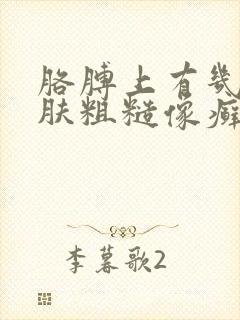 胳膊上有几
肤粗糙像癣
李暮歌2